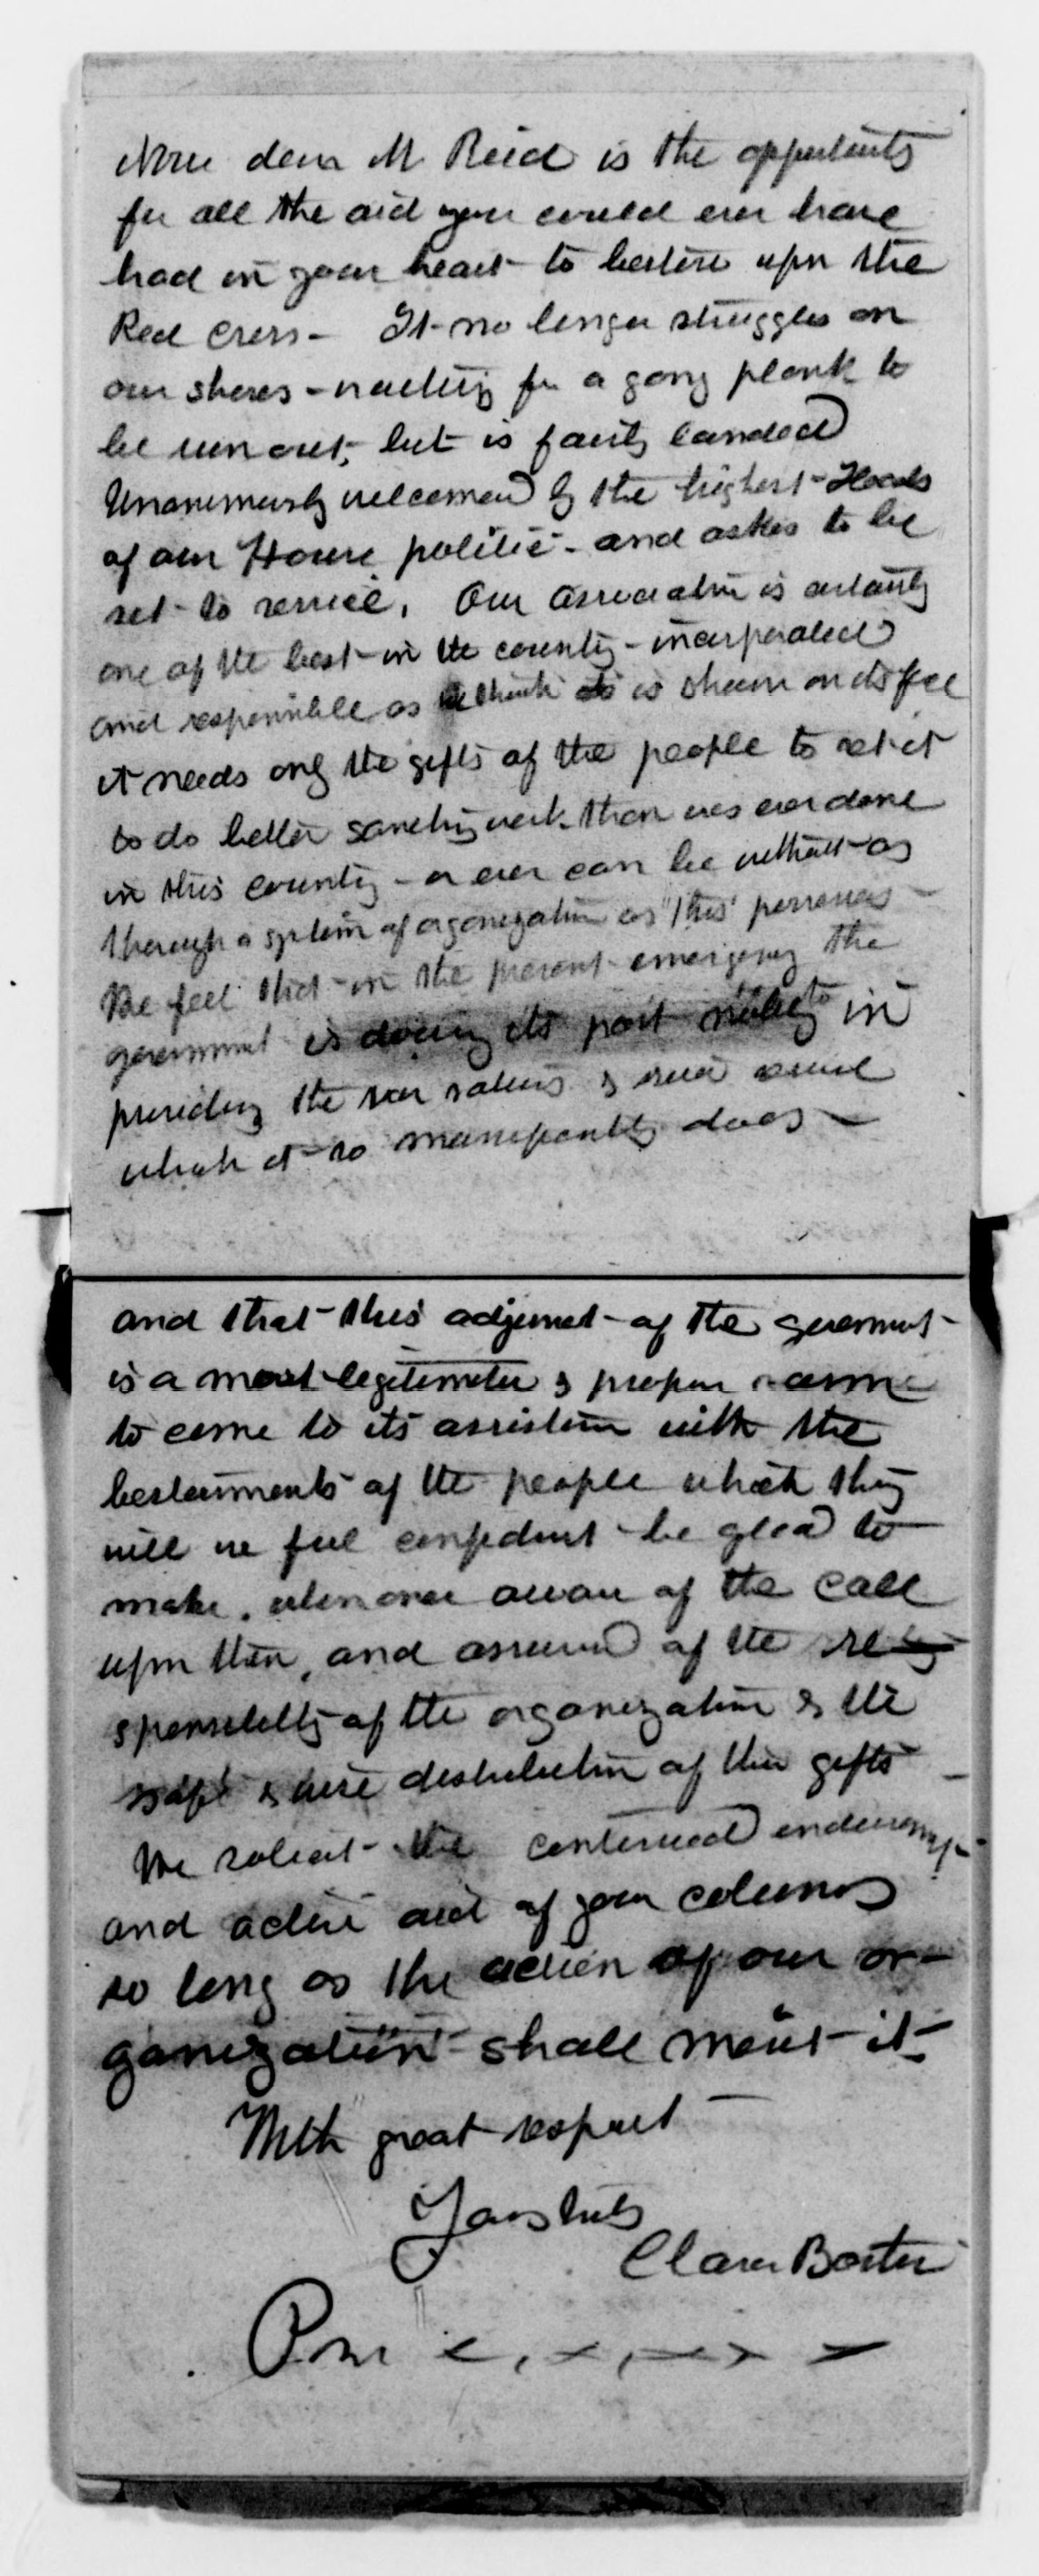 Now dear Mr Reid is the opportunity
for all the aid you could ever have
had in your heart to bestow upon the
Red Cross - It no longer struggles on
our shores - waiting for a gang plank to
be run out, but is fairly landed
Unanimously welcomed by the highest Heads
of our House politic - and asks to be
set to service. Our association is certainly
one of the best in the country - incorporated
and responsible as we think is shown on its face
it needs only the gifts of the people to set it
to do better sanitary work than was ever done
in this country - or ever can be without
through a system of organization as this possesses -
We feel that in the present emergency the
government is doing its part nobly in
providing the raw rations &
which it so magnificently does -
and that this adjunct of the government
is a most legitimate & proper
to come to its assistance with the
bestowments of the people which they
will we feel confident be glad to
make, when once aware of the call
upon them, and assured of the re
sponsibility of the organization & the
safe & wise distribution of their gifts -
We solicit the continued endorsement
and active aid of your columns
so long as the action of our or-
ganization shall merit it -
With great respect -
Yours truly
Clara Barton